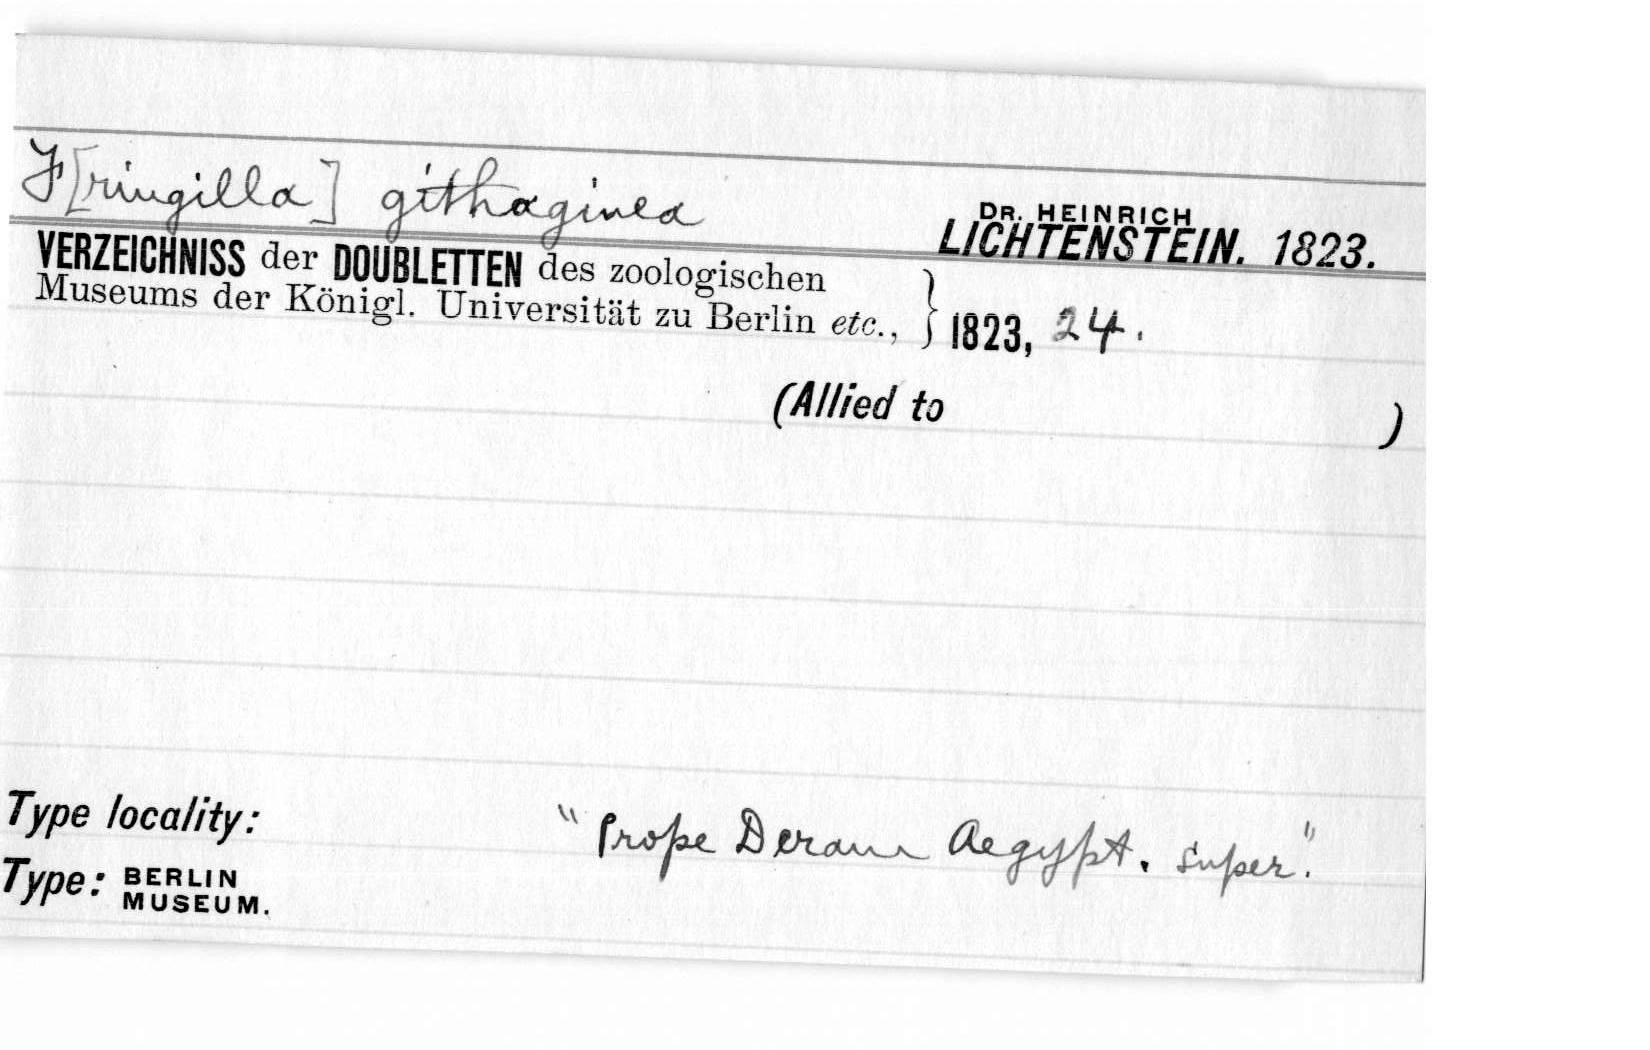 F[ringilla] githaginea
DR. HEINRICH
LICHTENSTEIN. 1823.
VERZEICHNISS der DOUBLETTEN des zoologischen
Museums der Königl. Universität zu Berlin etc., } 1823, 24.
(Allied to )
Type locality: "Prope Deram Aegypt. super."
Type: BERLIN
MUSEUM.